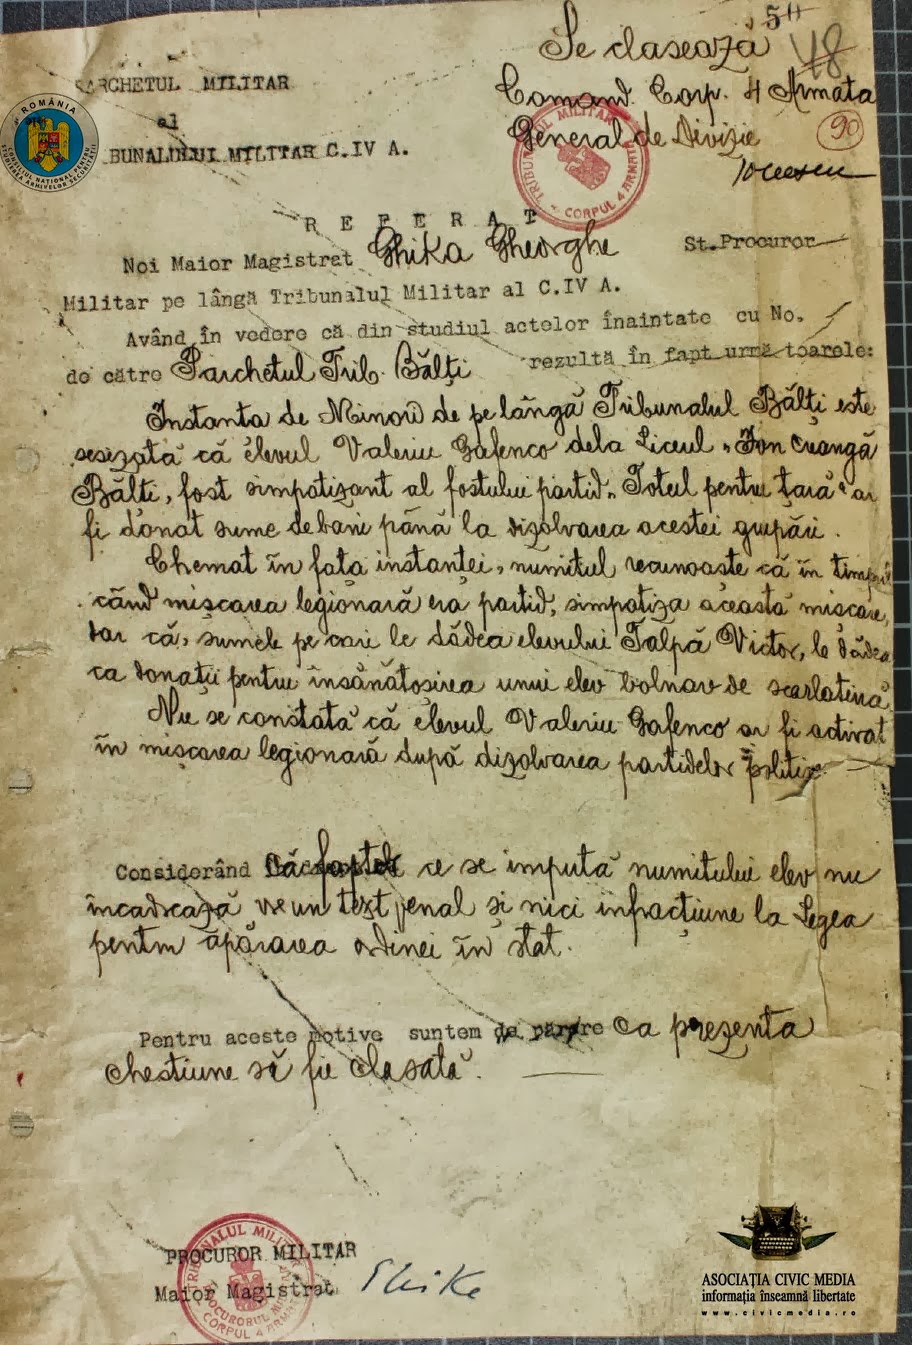 50
Se clasează 48
PARCHETUL MILITAR
Comand. Corp. 4 Armata
al
General de Divizie 90
BUNALULUI MILITAR C.IV A.
Ionescu
ROMÂNIA
CONSILIUL NAȚIONAL PENTRU STUDIEREA ARHIVELOR SECURITĂȚII
TRIBUNALUL MILITAR
CORPUL 4 ARMATĂ
REFERAT
Noi Maior Magistrat Ghika Gheorghe St.Procuror
Militar pe lângă Tribunalul Militar al C.IV A.
Având în vedere că din studiul actelor înaintate cu No.
de către Parchetul Trib. Bălți rezultă în fapt urmă toarele:
Instanta de Minori de pe lângă Tribunalul Bălți este
sesizată că elevul Valeriu Gafenco dela Liceul „Ion Creangă
Bălti, fost simpatizant al fostului partid „Totul pentru țară" ar
fi donat sume de bani până la dizolvarea acestei grupări.
Chemat în fața instanței, numitul recunoaște că în timpul
când mișcarea legionară era partid, simpatiza aceasta mișcare,
dar că, sumele pe cari le dădea elevului Talpă Victor, le dădea
ca donații pentru însănătosirea unui elev bolnav de scarlatină
Nu se constată că elevul Valeriu Gafenco ar fi activat
în mișcarea legionară după dizolvarea partidelor politice
Considerând că faptele ce se impută numitului elev nu
încadrează vre un text penal și nici infracțiune la Legea
pentru apărarea ordinei în stat.
Pentru aceste motive suntem de părere Ca prezenta
chestiune să fie clasată.
TRIBUNALUL MILITAR
CORPUL 4 ARMATĂ
PROCUROR MILITAR
Maior Magistrat Ghika
ASOCIAȚIA CIVIC MEDIA
informația înseamnă libertate
www.civicmedia.ro